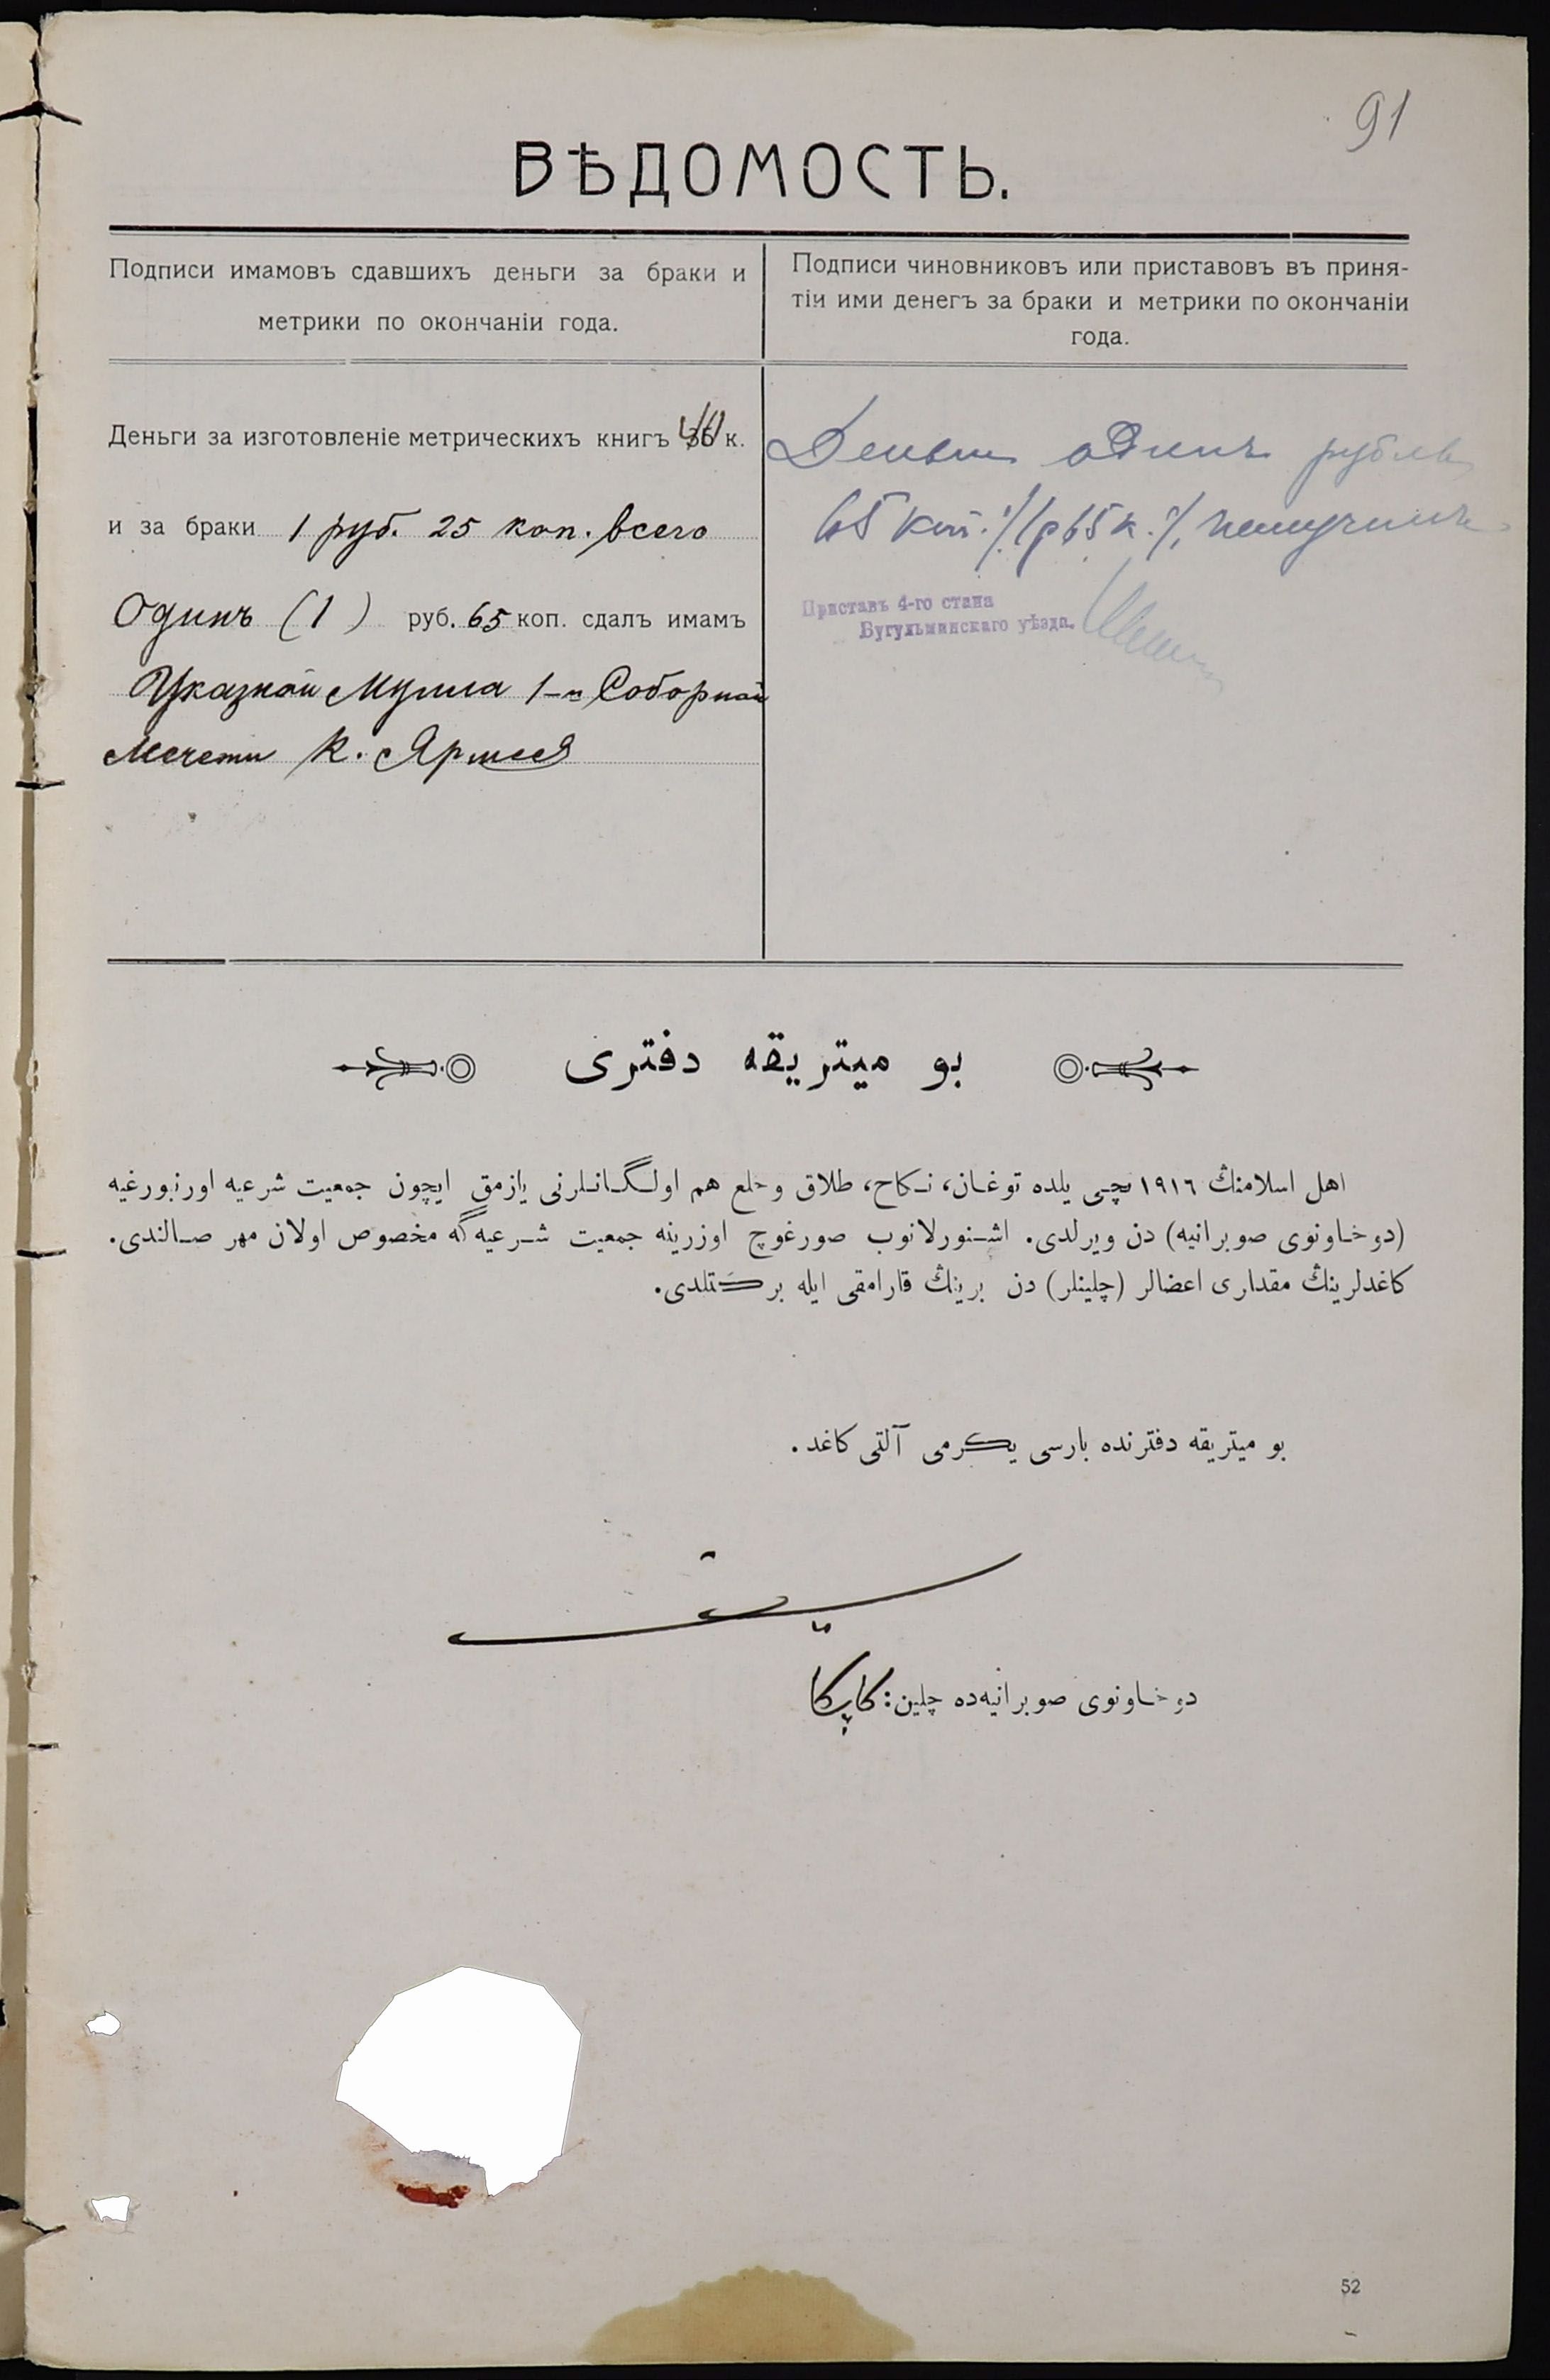 91
ВѢДОМОСТЬ.
Подписи имамовъ сдавшихъ деньги за браки и
метрики по окончаніи года.
Подписи чиновниковъ или приставовъ въ приня-
тіи ими денегъ за браки и метрики по окончаніи
года.
Деньги за изготовленіе метрическихъ книгъ 40 к.
и за браки 1 руб. 25 коп. всего
Одинъ (1) руб. 65 коп. сдалъ имамъ
Указной Мулла 1-й Соборной
Мечети К.
Деньги одинъ рубль
65 коп. /1 р 65 к./, получилъ
Приставъ 4-го стана
Бугульминскаго уѣзда.
بو ميتريقه دفترى
اهل اسلامنڭ ١٩١٦ نچى يلده توغان، نكاح، طلاق و خلع هم اولگانلرنى يازمق ايچون جمعيت شرعيه اورنبورغيه
(دوخاونوى صوبرانيه) دن ويرلدى. اشنورلانوب صورغوچ اوزرينه جمعيت شرعيه گه مخصوص اولان مهر صالندى.
كاغدلرينڭ مقدارى اعضالر (چلينلر) دن برينڭ قارامقى ايله بركتلدى.
بو ميتريقه دفترنده بارسى يكرمى آلتى كاغد.
دوخاونوى صوبرانيه‌ده چلين:
52